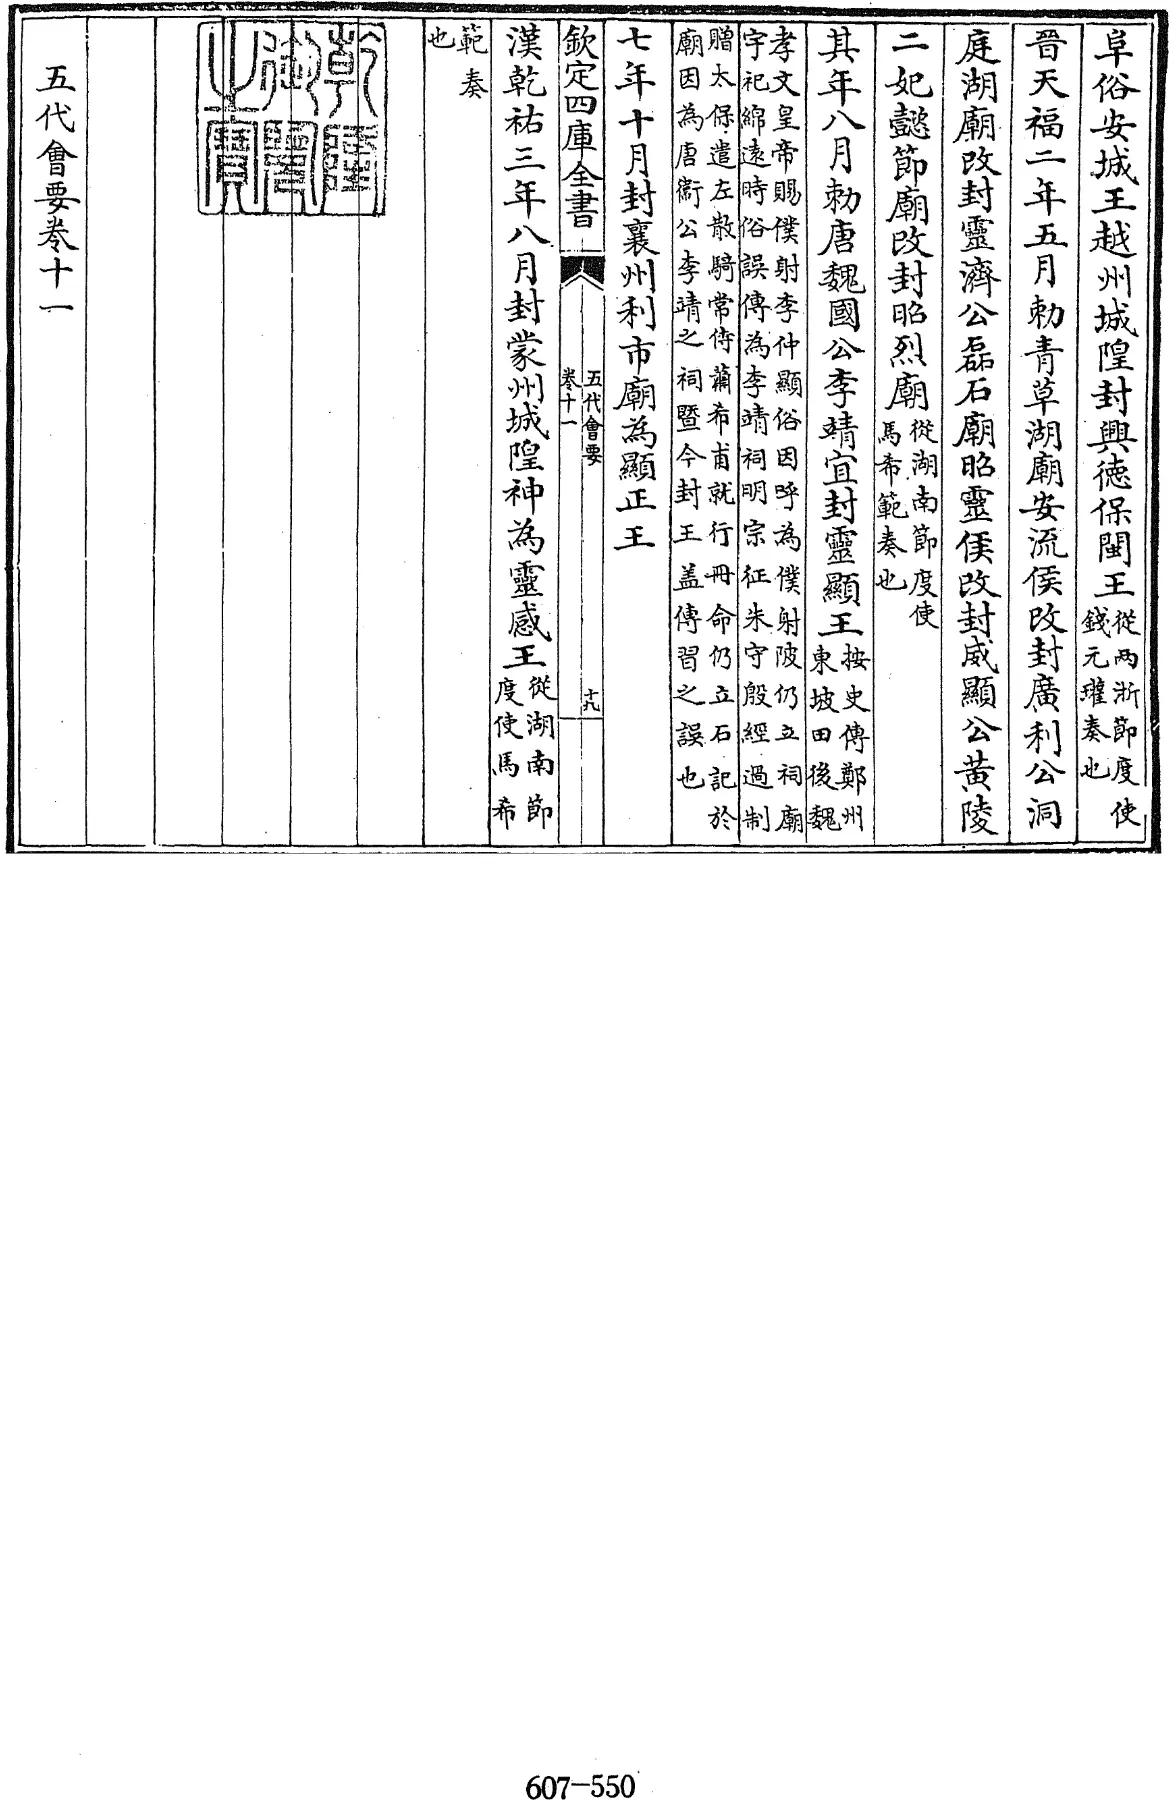 阜俗安城王越州城隍封興德保閩王從兩浙節度使
錢元瓘奏也
晉天福二年五月勅青草湖廟安流侯改封廣利公洞
庭湖廟改封靈濟公磊石廟昭靈侯改封威顯公黃陵
二妃懿節廟改封昭烈廟從湖南節度使
馬希範奏也
其年八月勅唐魏國公李靖宜封靈顯王按史傳鄭州
東坡田後魏
孝文皇帝賜僕射李仲顯俗因呼為僕射陂仍立祠廟
宇祀綿遠時俗誤傳為李靖祠明宗征朱守殷經過制
贈太保遣左散騎常侍蕭希甫就行冊命仍立石記於
廟因為唐衞公李靖之祠暨今封王盖傳習之誤也
七年十月封襄州利市廟為顯正王
欽定四庫全書
五代會要
卷十一
十九
漢乾祐三年八月封蒙州城隍神為靈感王從湖南節
度使馬希
範奏
也
乾隆
御覽
之寶
五代會要卷十一
607-550